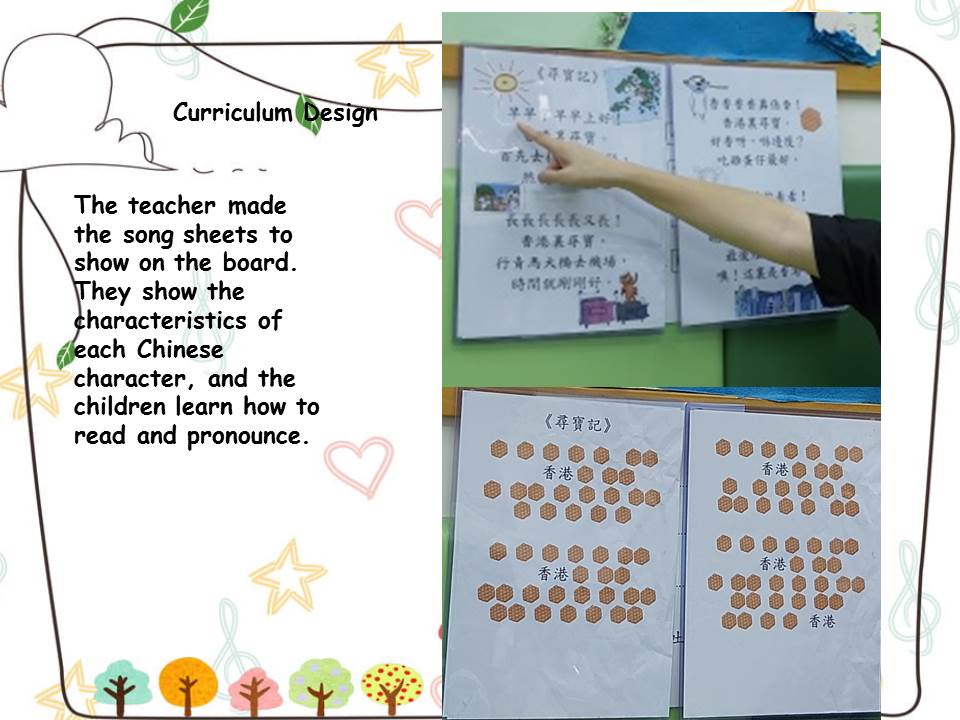 Curriculum Design
The teacher made
the song sheets to
show on the board.
They show the
characteristics of
each Chinese
character, and the
children learn how to
read and pronounce.
《尋寶記》
早早 早早上好！
裏尋寶，
首先去
然
長長長長長又長！
香港裏尋寶，
行青馬大橋去機場，
時間就剛剛好。
香香香香真係香！
香港裏尋寶，
好香呀，喺邊度？
吃雞蛋仔最好。
最後
！這裏是香港
《尋寶記》
香港
香港
香港
香港
香港